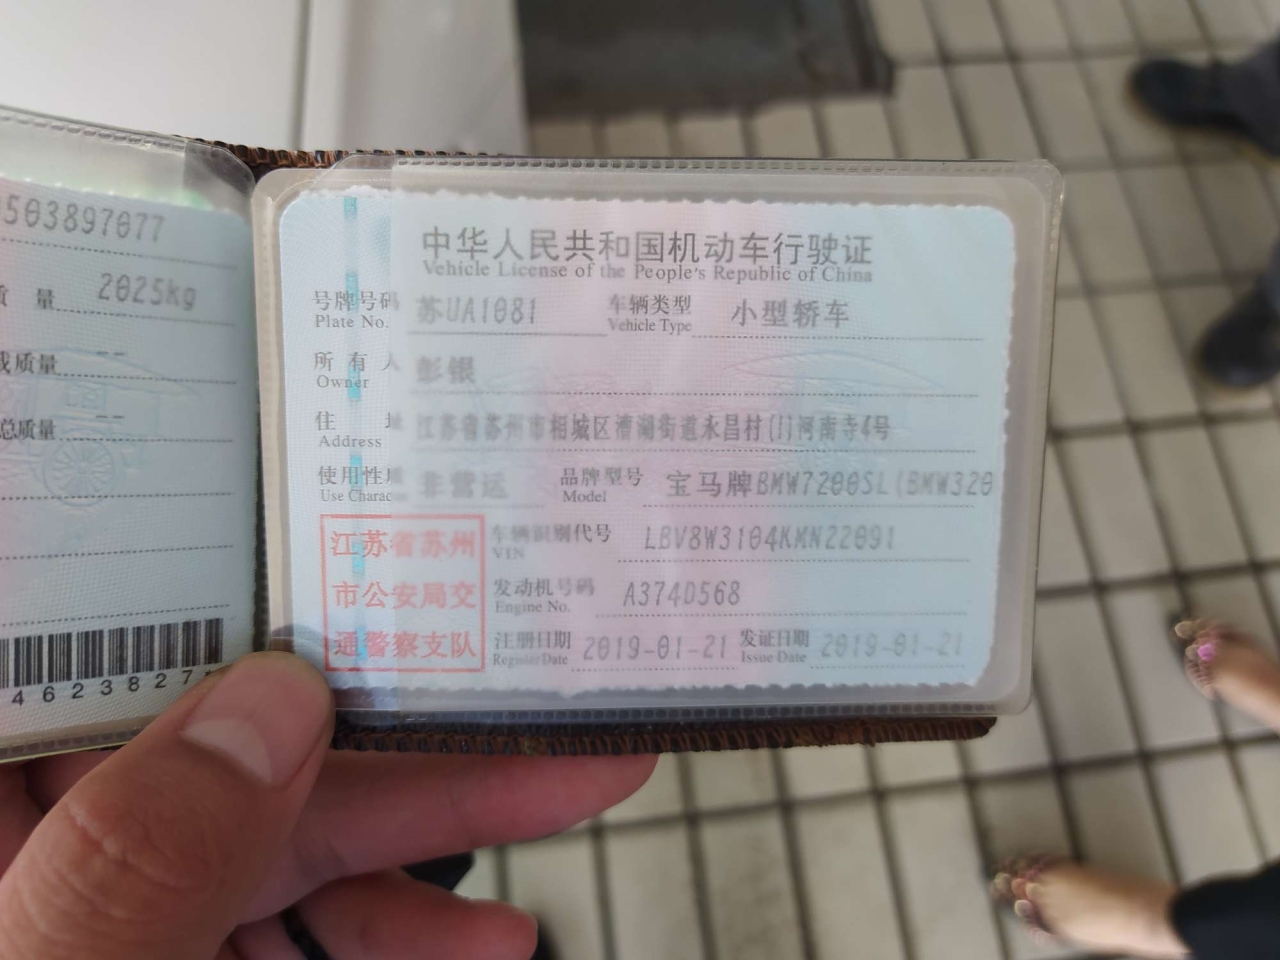 503897077
质 量 2025kg
载质量 --
总质量 --
4623827*
中华人民共和国机动车行驶证
Vehicle License of the People's Republic of China
号牌号码 苏UA1081 车辆类型 小型轿车
Plate No. Vehicle Type
所有人 彭银
Owner
住 址 江苏省苏州市相城区漕湖街道永昌村(1)河南寺4号
Address
使用性质 非营运 品牌型号 宝马牌BMW7200SL(BMW320
Use Charac Model
江苏省苏州
市公安局交
通警察支队
车辆识别代号 LBV8W3104KMN22091
VIN
发动机号码 A374D568
Engine No.
注册日期 2019-01-21 发证日期 2019-01-21
Register Date Issue Date